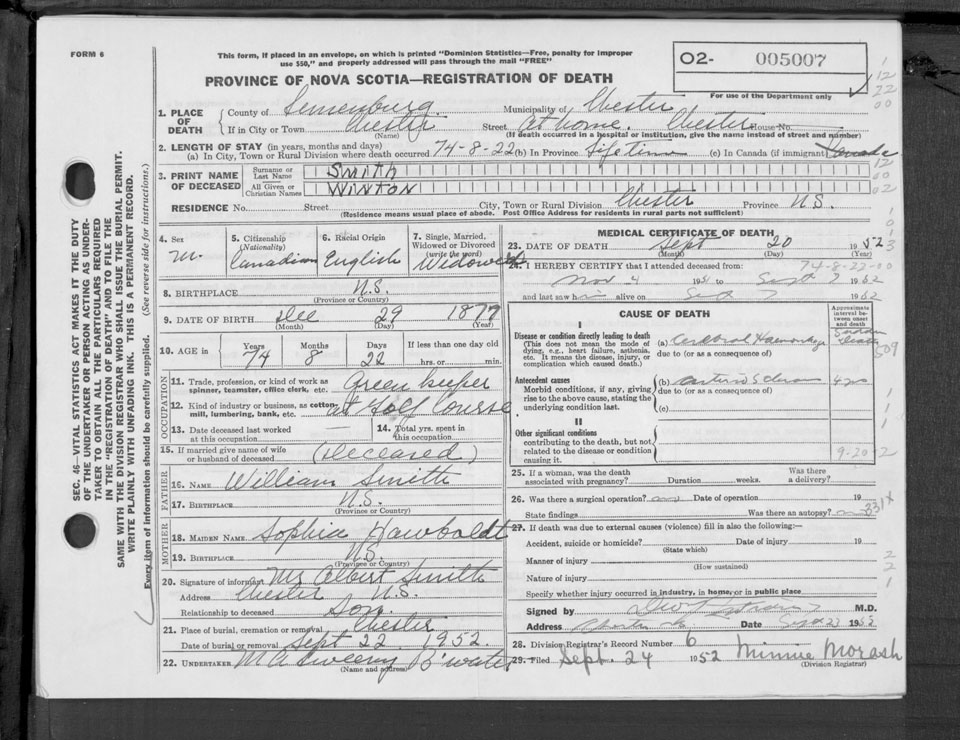 FORM 6
This form, if placed in an envelope, on which is printed "Dominion Statistics—Free, penalty for improper
use $50," and properly addressed will pass through the mail "FREE"
PROVINCE OF NOVA SCOTIA—REGISTRATION OF DEATH
02- 005007
For use of the Department only
1. PLACE OF DEATH
County of Lunenburg Municipality of Chester
If in City or Town Chester Street At home. Chester House No.
(Name) (If death occurred in a hospital or institution, give the name instead of street and number)
2. LENGTH OF STAY (in years, months and days)
(a) In City, Town or Rural Division where death occurred 74-8-22 (b) In Province Lifetime (c) In Canada (if immigrant) Canada
3. PRINT NAME OF DECEASED
Surname or Last Name SMITH
All Given or Christian Names WINTON
RESIDENCE No. Street City, Town or Rural Division Chester Province N.S.
(Residence means usual place of abode. Post Office Address for residents in rural parts not sufficient)
4. Sex M.
5. Citizenship (Nationality) Canadian
6. Racial Origin English
7. Single, Married, Widowed or Divorced (write the word) Widowed
8. BIRTHPLACE N.S.
(Province or Country)
9. DATE OF BIRTH Dec 29 1877
(Month) (Day) (Year)
10. AGE in Years Months Days If less than one day old
74 8 22 hrs. or min.
OCCUPATION
11. Trade, profession, or kind of work as spinner, teamster, office clerk, etc. Green keeper
12. Kind of industry or business, as cotton-mill, lumbering, bank, etc. at Golf Course
13. Date deceased last worked at this occupation
14. Total yrs. spent in this occupation
15. If married give name of wife or husband of deceased (Deceased)
FATHER
16. NAME William Smith
17. BIRTHPLACE N.S.
(Province or Country)
MOTHER
18. MAIDEN NAME Sophia Hawboldt
19. BIRTHPLACE N.S.
(Province or Country)
20. Signature of informant Mr Albert Smith
Address Chester N.S.
Relationship to deceased Son.
21. Place of burial, cremation or removal Chester
Date of burial or removal Sept 22 1952.
22. UNDERTAKER M A Sweeny B'water
(Name and address)
MEDICAL CERTIFICATE OF DEATH
23. DATE OF DEATH Sept 20 1952
(Month) (Day) (Year)
74-8-22-00
24. I HEREBY CERTIFY that I attended deceased from:
Nov 4 1951 to Sept 7 1952
and last saw him alive on Sept 7 1952
CAUSE OF DEATH
Approximate interval between onset and death
I
Disease or condition directly leading to death
(This does not mean the mode of dying, e.g., heart failure, asthenia, etc. It means the disease, injury, or complication which caused death.)
(a) Cerebral Haemorrhage Sudden death
due to (or as a consequence of)
Antecedent causes
Morbid conditions, if any, giving rise to the above cause, stating the underlying condition last.
(b) 4 yrs
due to (or as a consequence of)
(c)
II
Other significant conditions
contributing to the death, but not related to the disease or condition causing it.
9-20-2
25. If a woman, was the death associated with pregnancy? Duration weeks. Was there a delivery?
26. Was there a surgical operation? no Date of operation 19
State findings Was there an autopsy? no
331X
27. If death was due to external causes (violence) fill in also the following:—
Accident, suicide or homicide? Date of injury 19
(State which)
Manner of injury
(How sustained)
Nature of injury
Specify whether injury occurred in industry, in home, or in public place
Signed by M.D.
Address Date Sept 23 1952
28. Division Registrar's Record Number 6
29. Filed Sept. 24 1952 Minnie Morash
(Division Registrar)
SEC. 46—VITAL STATISTICS ACT MAKES IT THE DUTY
OF THE UNDERTAKER OR PERSON ACTING AS UNDER-
TAKER TO OBTAIN ALL THE PARTICULARS REQUIRED
IN THE "REGISTRATION OF DEATH" AND TO FILE THE
SAME WITH THE DIVISION REGISTRAR WHO SHALL ISSUE THE BURIAL PERMIT.
WRITE PLAINLY WITH UNFADING INK. THIS IS A PERMANENT RECORD.
Every item of information should be carefully supplied. (See reverse side for instructions.)